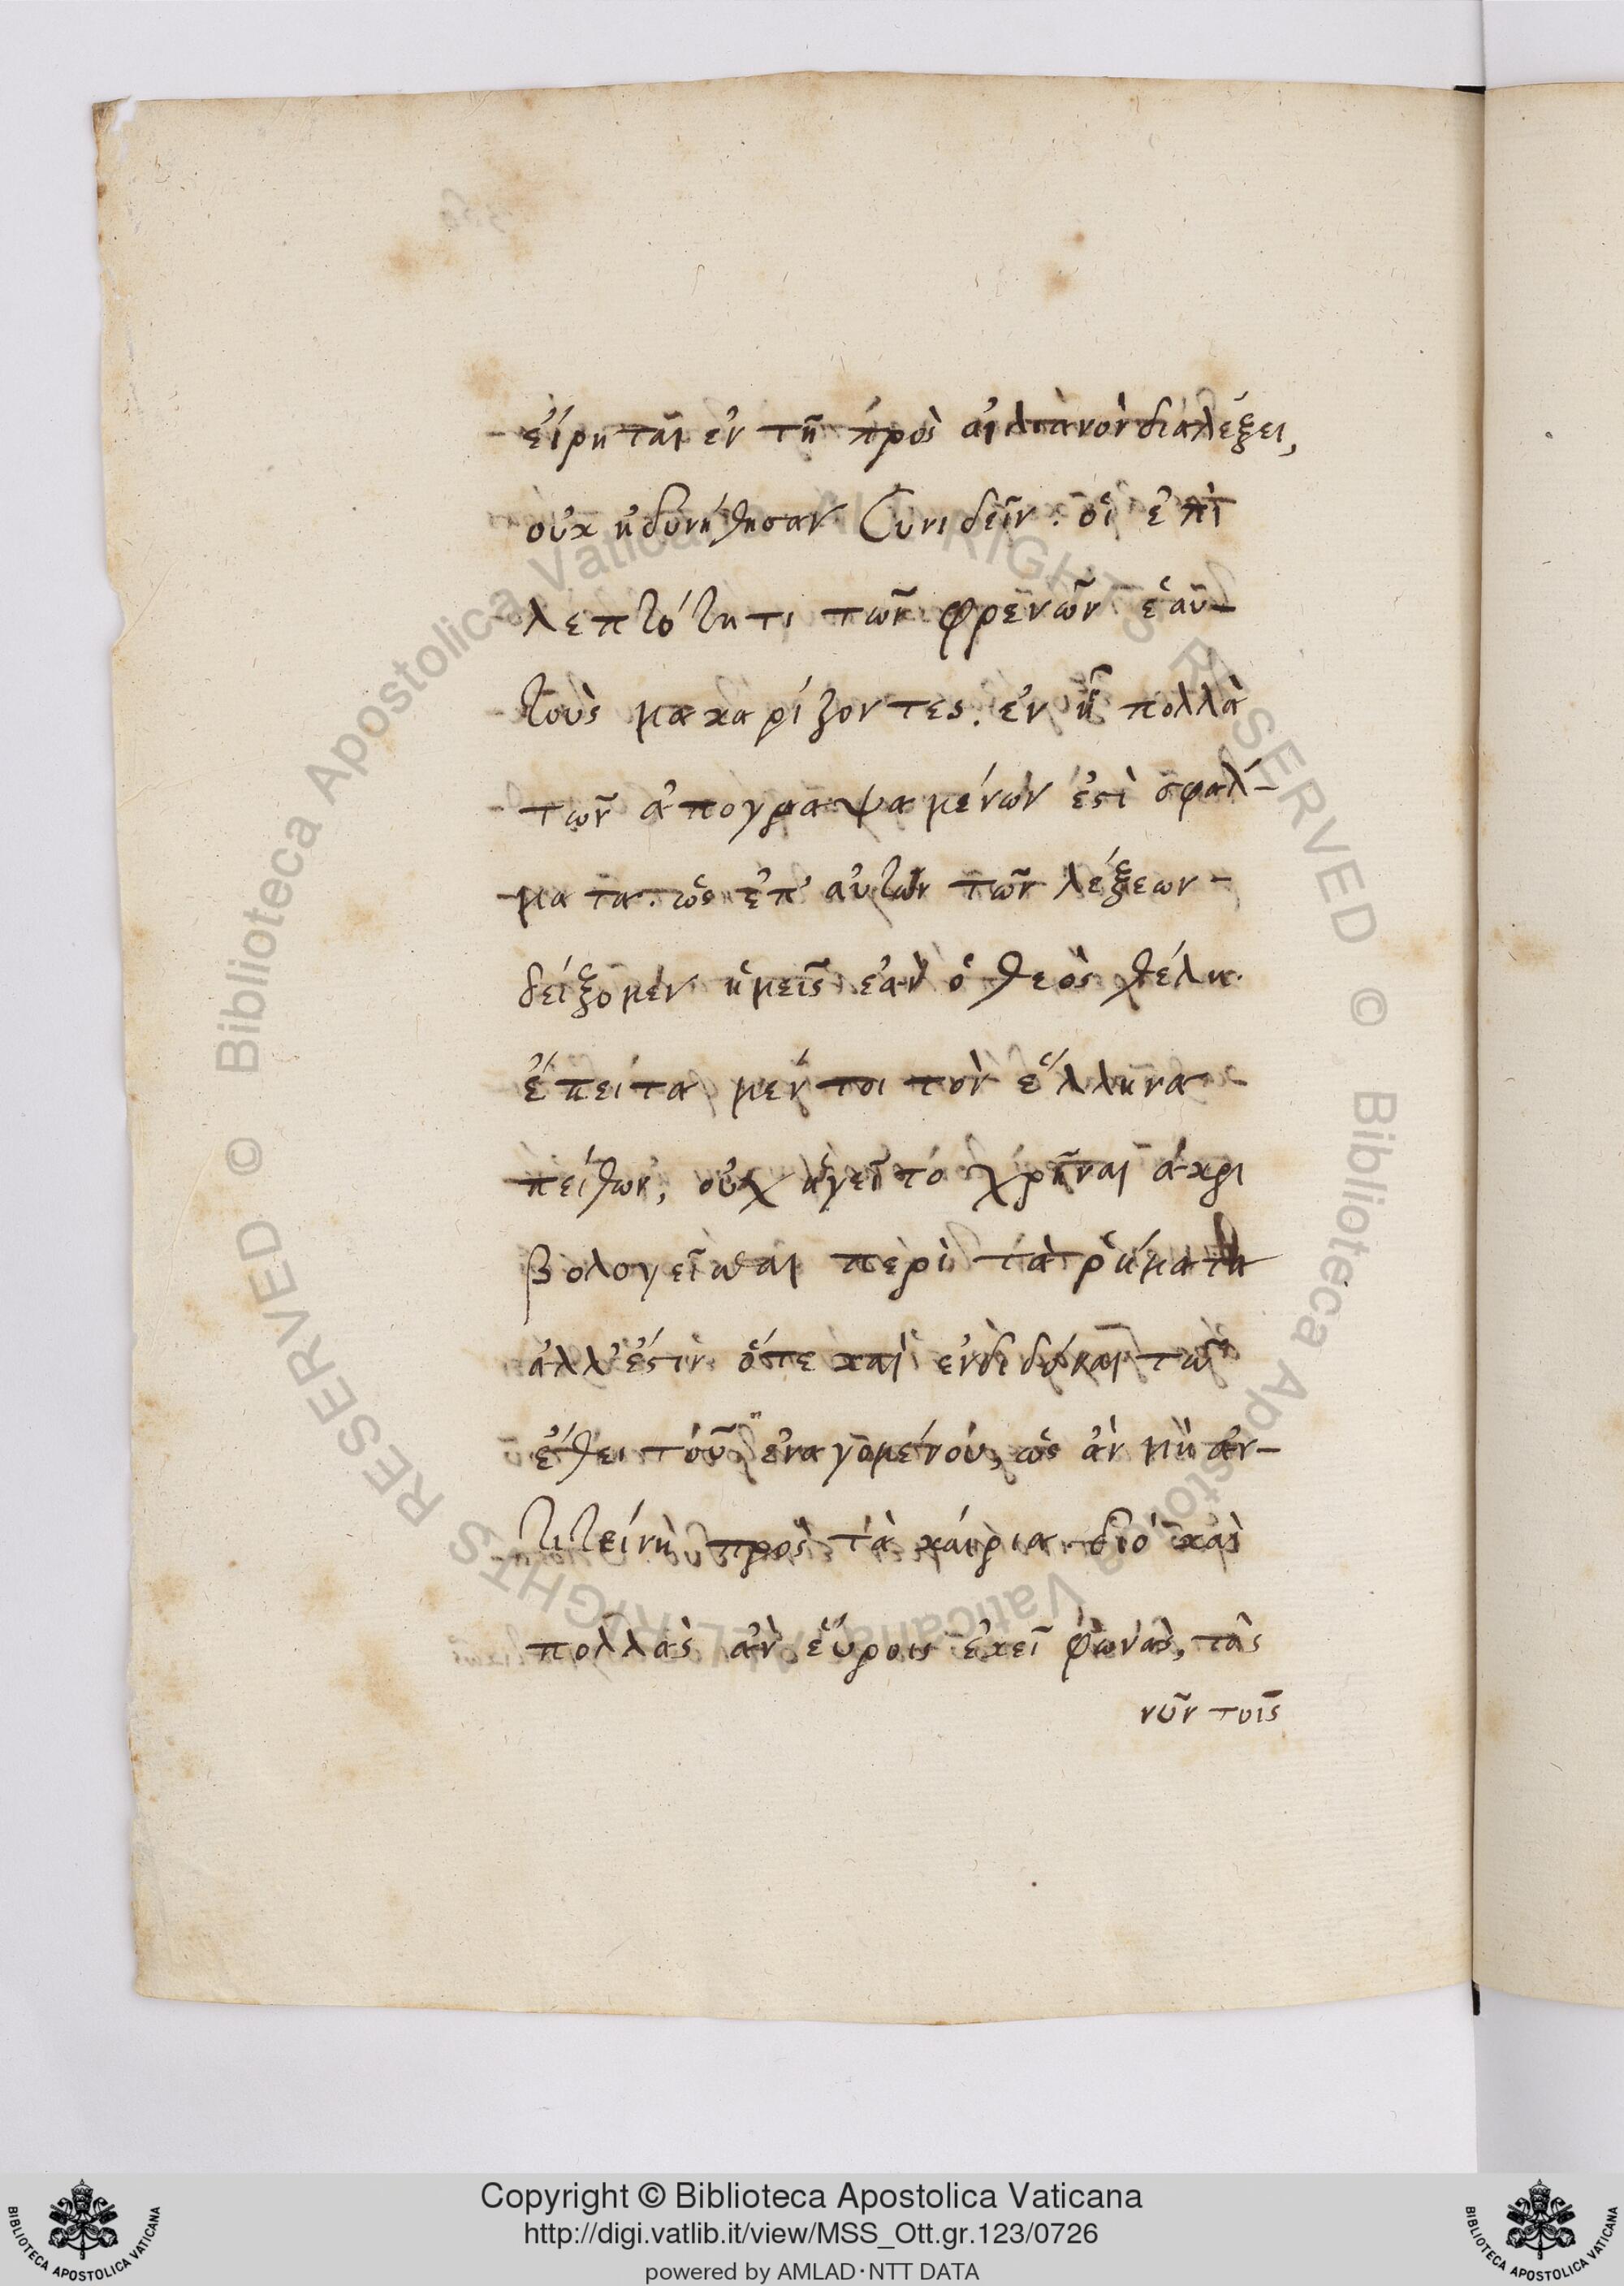 εἴρηται ἐν τῇ πρὸς αἰλιανὸν διαλέξει,
οὐκ ἠδυνήθησαν συνιδεῖν. οἱ ἐπὶ
λεπτότητι τῶν φρενῶν ἑαυ-
τοὺς μακαρίζοντες. ἐν ᾗ πολλὰ
τῶν ἀπογραψαμένων ἐστὶ σφάλ-
ματα. ὡς ἐπ' αὐτῶν τῶν λέξεων
δείξομεν ἡμεῖς ἐὰν ὁ θεὸς θέλη.
ἔπειτα μέν τοι τὸν ἕλληνα
πείθων, οὐχ ἡγεῖτό χρῆναι ἀκρι
βολογεῖσθαι περὶ τὰ ῥήματα
ἀλλ' ἔστιν ὅτε καὶ ἐνδιδόναι τῶ
ἔθει τοῦ ἐναγομένου, ὡς ἂν μὴ ἀν-
τιτείνῃ πρὸς τὰ καίρια. διό καὶ
πολλὰς ἂν εὕροις ἐκεῖ φωνὰς, τὰς
νῦν τοῖς
Copyright © Biblioteca Apostolica Vaticana
http://digi.vatlib.it/view/MSS_Ott.gr.123/0726
powered by AMLAD·NTT DATA
BIBLIOTECA APOSTOLICA VATICANA
BIBLIOTECA APOSTOLICA VATICANA
© Biblioteca Apostolica Vaticana ALL RIGHTS RESERVED
© Biblioteca Apostolica Vaticana ALL RIGHTS RESERVED